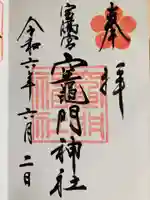 奉拝
宝満宮
竈門神社
令和六年六月二日